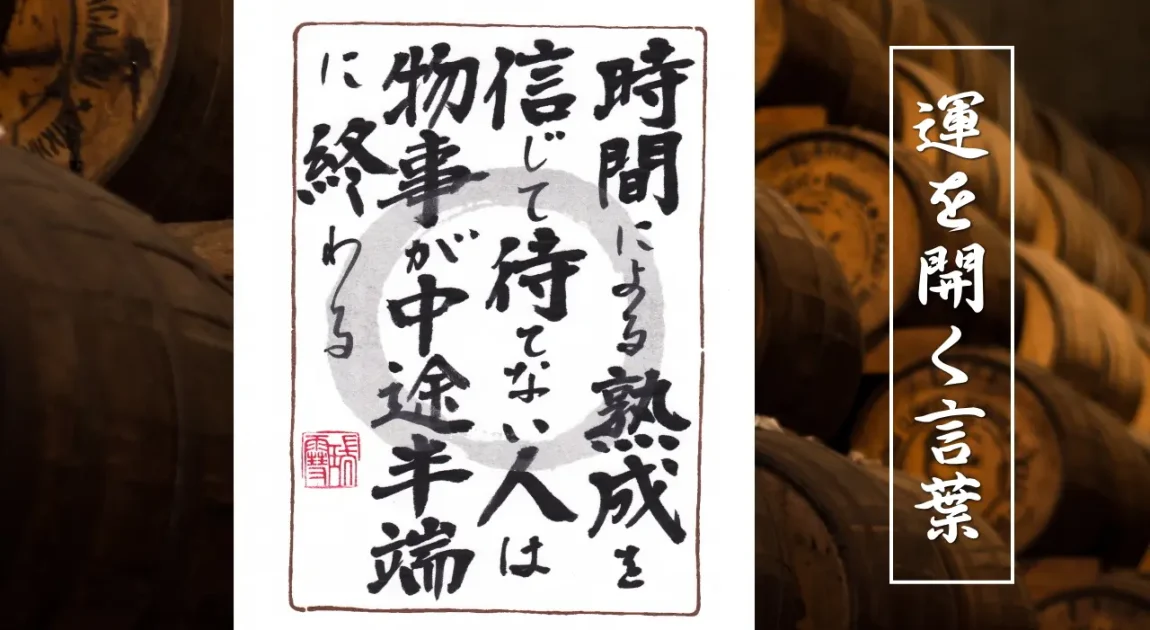 時間による熟成を
信じて待てない人は
物事が中途半端
に終わる
運を開く言葉